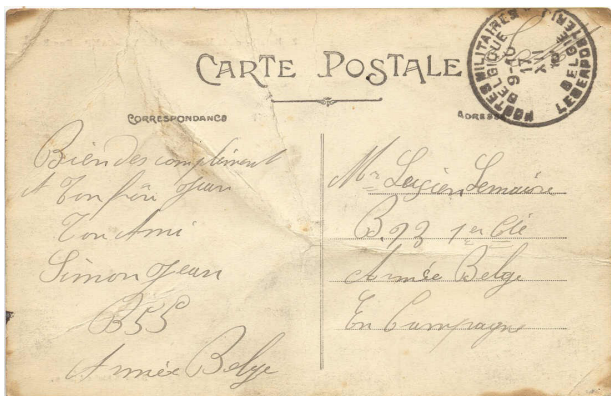 CARTE POSTALE
POSTES MILITAIRES
BELGIQUE
9-10
17
XII
BELGIE
LEGERPOSTERIJ
CORRESPONDANCE
ADRESSE
Bien des compliment
A Ton frère Jean
Ton Ami
Simon Jean
B55
Armée Belge
Mr Lucien Lemaire
B.23 1er Cie
Armée Belge
En Campagne